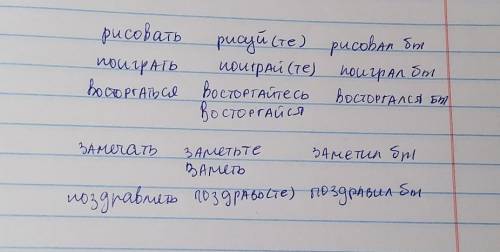 рисовать рисуй(те) рисовал бы
поиграть поиграй(те) поиграл бы
восторгаться восторгайтесь восторгался бы
восторгайся
замечать заметьте заметил бы
заметь
поздравлять поздравь(те) поздравил бы